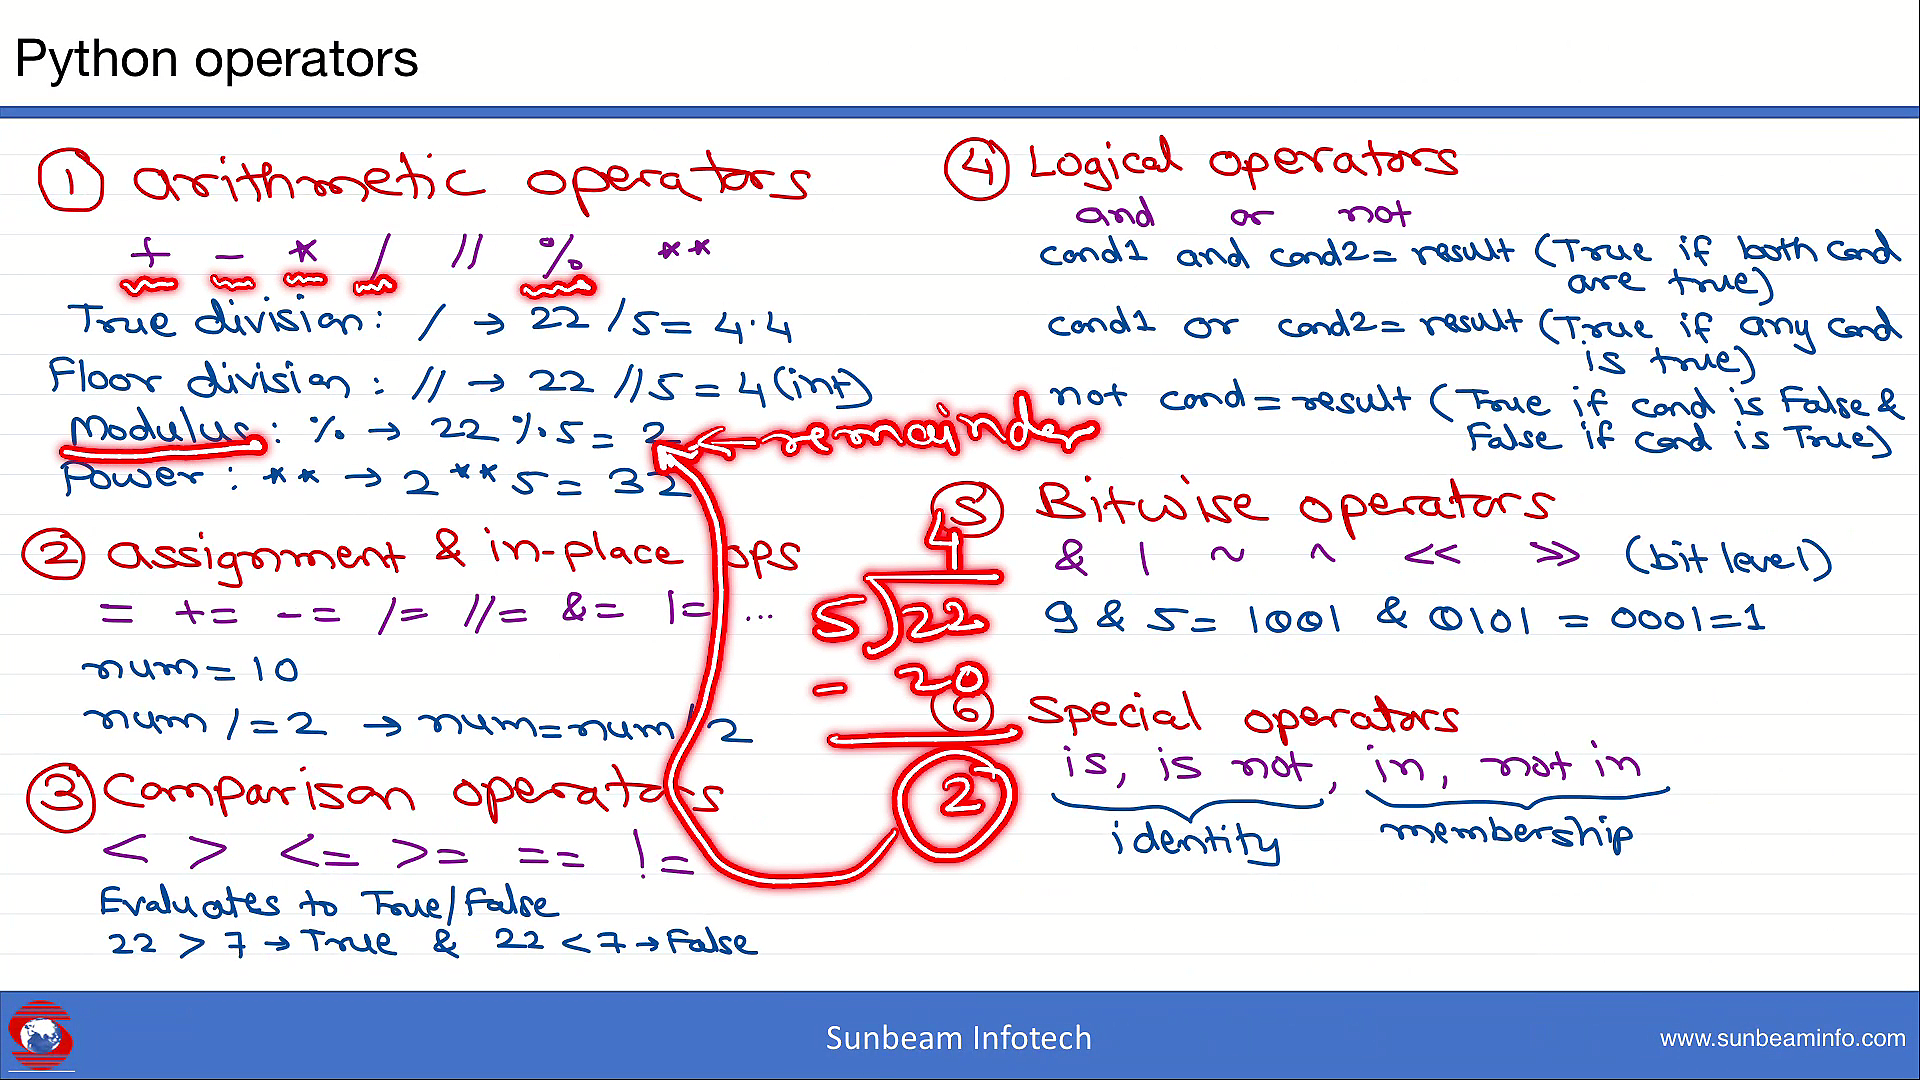 Python operators
① arithmetic operators
+ - * / // % **
True division: / → 22 / 5 = 4.4
Floor division: // → 22 // 5 = 4 (int)
Modulus: % → 22 % 5 = 2 ← remainder
Power: ** → 2 ** 5 = 32
② assignment & in-place ops
= += -= /= //= &= |= ...
num = 10
num /= 2 → num = num / 2
③ Comparison operators
< > <= >= == !=
Evaluates to True/False
22 > 7 → True & 22 < 7 → False
4
5 ) 22
- 20
2
④ Logical operators
and or not
cond1 and cond2 = result (True if both cond
are true)
cond1 or cond2 = result (True if any cond
is true)
not cond = result (True if cond is False &
False if cond is True)
⑤ Bitwise operators
& | ~ ^ << >> (bit level)
9 & 5 = 1001 & 0101 = 0001 = 1
⑥ Special operators
is, is not, in, not in
identity membership
Sunbeam Infotech
www.sunbeaminfo.com